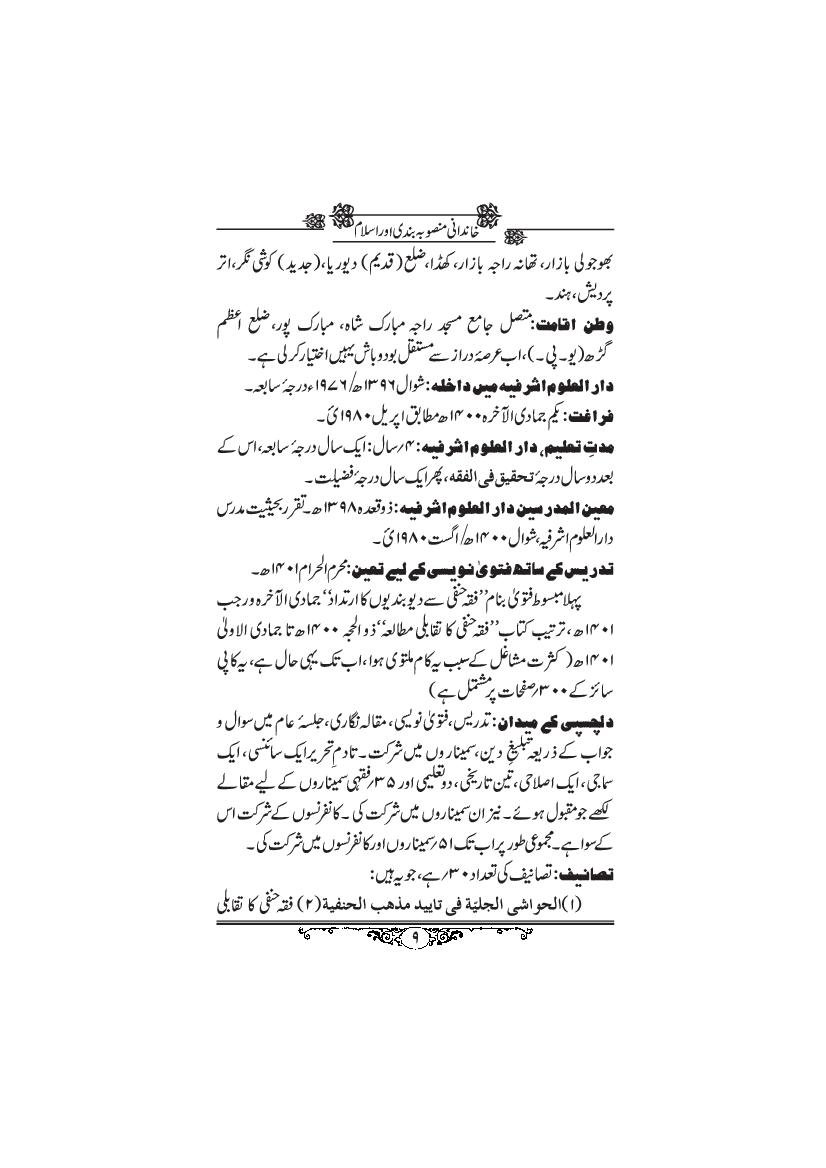 خاندانی منصوبہ بندی اور اسلام
بھوجولی بازار، تھانہ راجہ بازار، کھڈا، ضلع (قدیم) دیوریا، (جدید) کوشی نگر، اتر
پردیش، ہند۔
وطن اقامت: متصل جامع مسجد راجہ مبارک شاہ، مبارک پور، ضلع اعظم
گڑھ (یو۔پی۔)، اب عرصۂ دراز سے مستقل بود و باش یہیں اختیار کر لی ہے۔
دار العلوم اشرفیہ میں داخلہ: شوال ۱۳۹۶ھ/۱۹۷۶ء درجۂ سابعہ۔
فراغت: یکم جمادی الآخرہ ۱۴۰۰ھ مطابق اپریل ۱۹۸۰ئ۔
مدتِ تعلیم، دار العلوم اشرفیہ: ۴؍سال: ایک سال درجۂ سابعہ، اس کے
بعد دو سال درجۂ تحقیق فی الفقہ، پھر ایک سال درجۂ فضیلت۔
معین المدرسین دار العلوم اشرفیہ: ذو قعدہ ۱۳۹۸ھ۔ تقرر بحیثیت مدرس
دار العلوم اشرفیہ، شوال ۱۴۰۰ھ/اگست ۱۹۸۰ئ۔
تدریس کے ساتھ فتویٰ نویسی کے لیے تعین: محرم الحرام ۱۴۰۱ھ۔
پہلا مبسوط فتویٰ بنام ’’فقہ حنفی سے دیوبندیوں کا ارتداد‘‘ جمادی الآخرہ و رجب
۱۴۰۱ھ، ترتیب کتاب ’’فقہ حنفی کا تقابلی مطالعہ‘‘ ذو الحجہ ۱۴۰۰ھ تا جمادی الاولیٰ
۱۴۰۱ھ (کثرت مشاغل کے سبب یہ کام ملتوی ہوا، اب تک یہی حال ہے، یہ کاپی
سائز کے ۳۰۰؍صفحات پر مشتمل ہے)
دلچسپی کے میدان: تدریس، فتویٰ نویسی، مقالہ نگاری، جلسۂ عام میں سوال و
جواب کے ذریعہ تبلیغِ دین، سمیناروں میں شرکت۔ تادمِ تحریر ایک سائنسی، ایک
سماجی، ایک اصلاحی، تین تاریخی، دو تعلیمی اور ۳۵؍فقہی سمیناروں کے لیے مقالے
لکھے جو مقبول ہوئے۔ نیز ان سمیناروں میں شرکت کی۔ کانفرنسوں کے شرکت اس
کے سوا ہے۔ مجموعی طور پر اب تک ۵۱؍سمیناروں اور کانفرنسوں میں شرکت کی۔
تصانیف: تصانیف کی تعداد ۳۰؍ہے، جو یہ ہیں:
(۱) الحواشی الجلیّة فی تایید مذهب الحنفیة (۲) فقہ حنفی کا تقابلی
۹